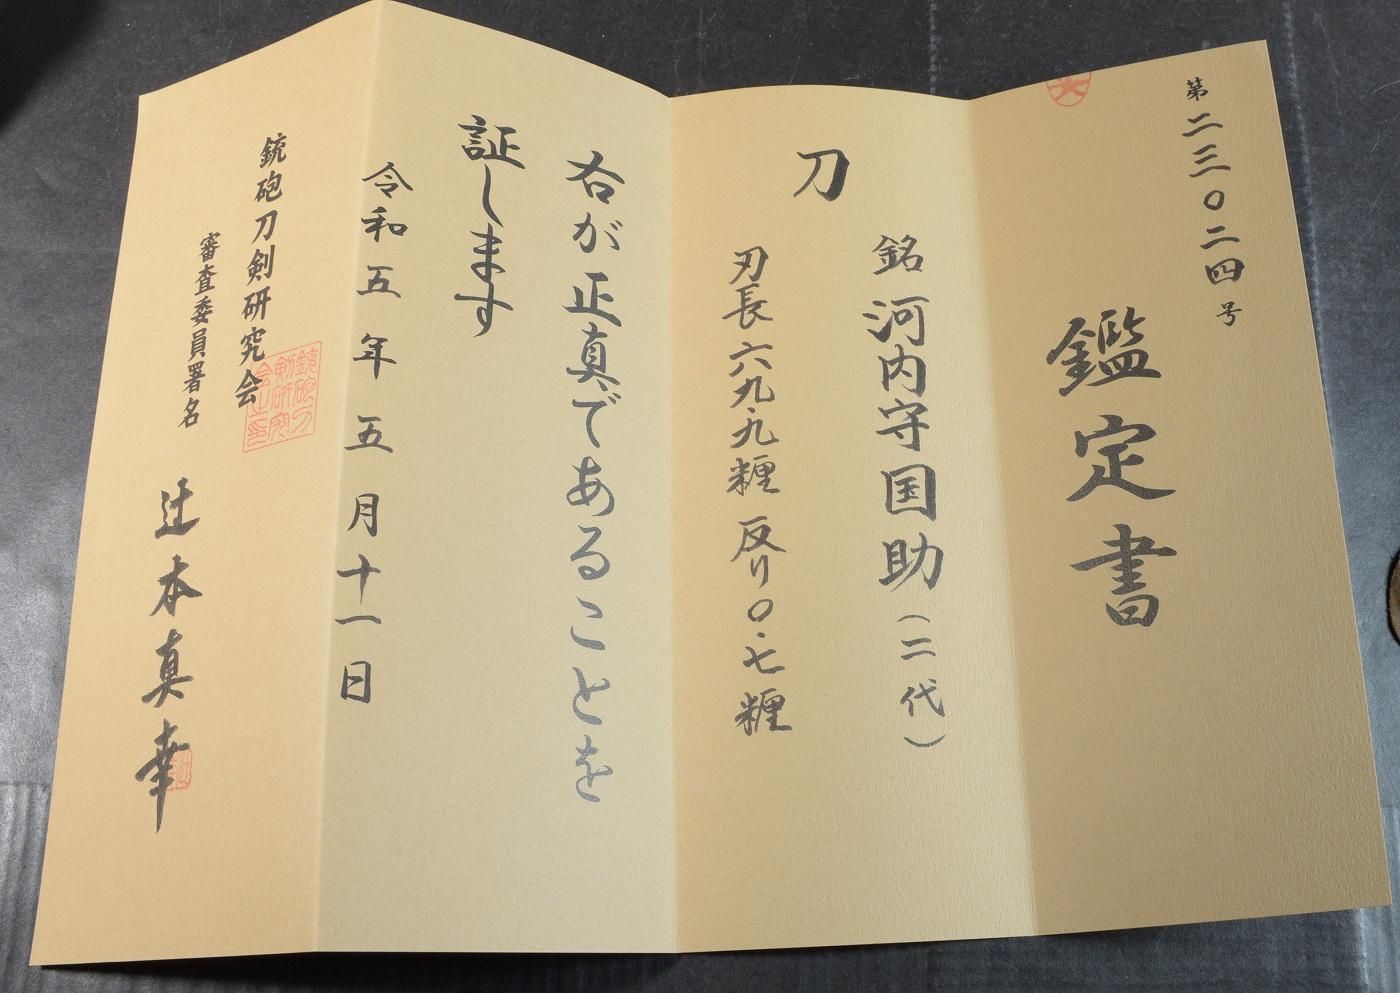 第二三〇二四号
鑑定書
刀
銘 河内守国助(二代)
刃長 六九.九糎 反り〇.七糎
右が正真であることを
証します
令和五年五月十一日
銃砲刀剣研究会
審査委員署名
辻本真幸